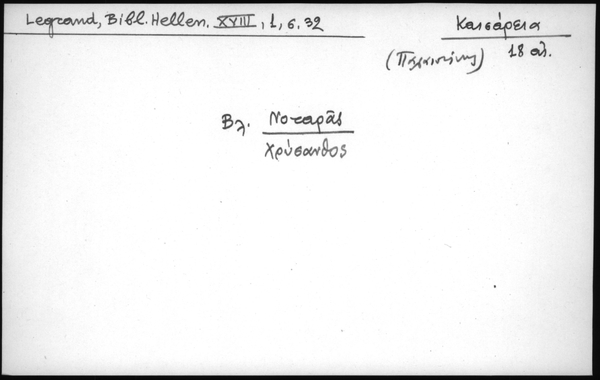 Legrand, Bibl. Hellen. XVIII, 1, σ. 32
Καισάρεια
(Παλαιστίνης) 18 αι.
Βλ. Νοταρᾶς
Χρύσανθος